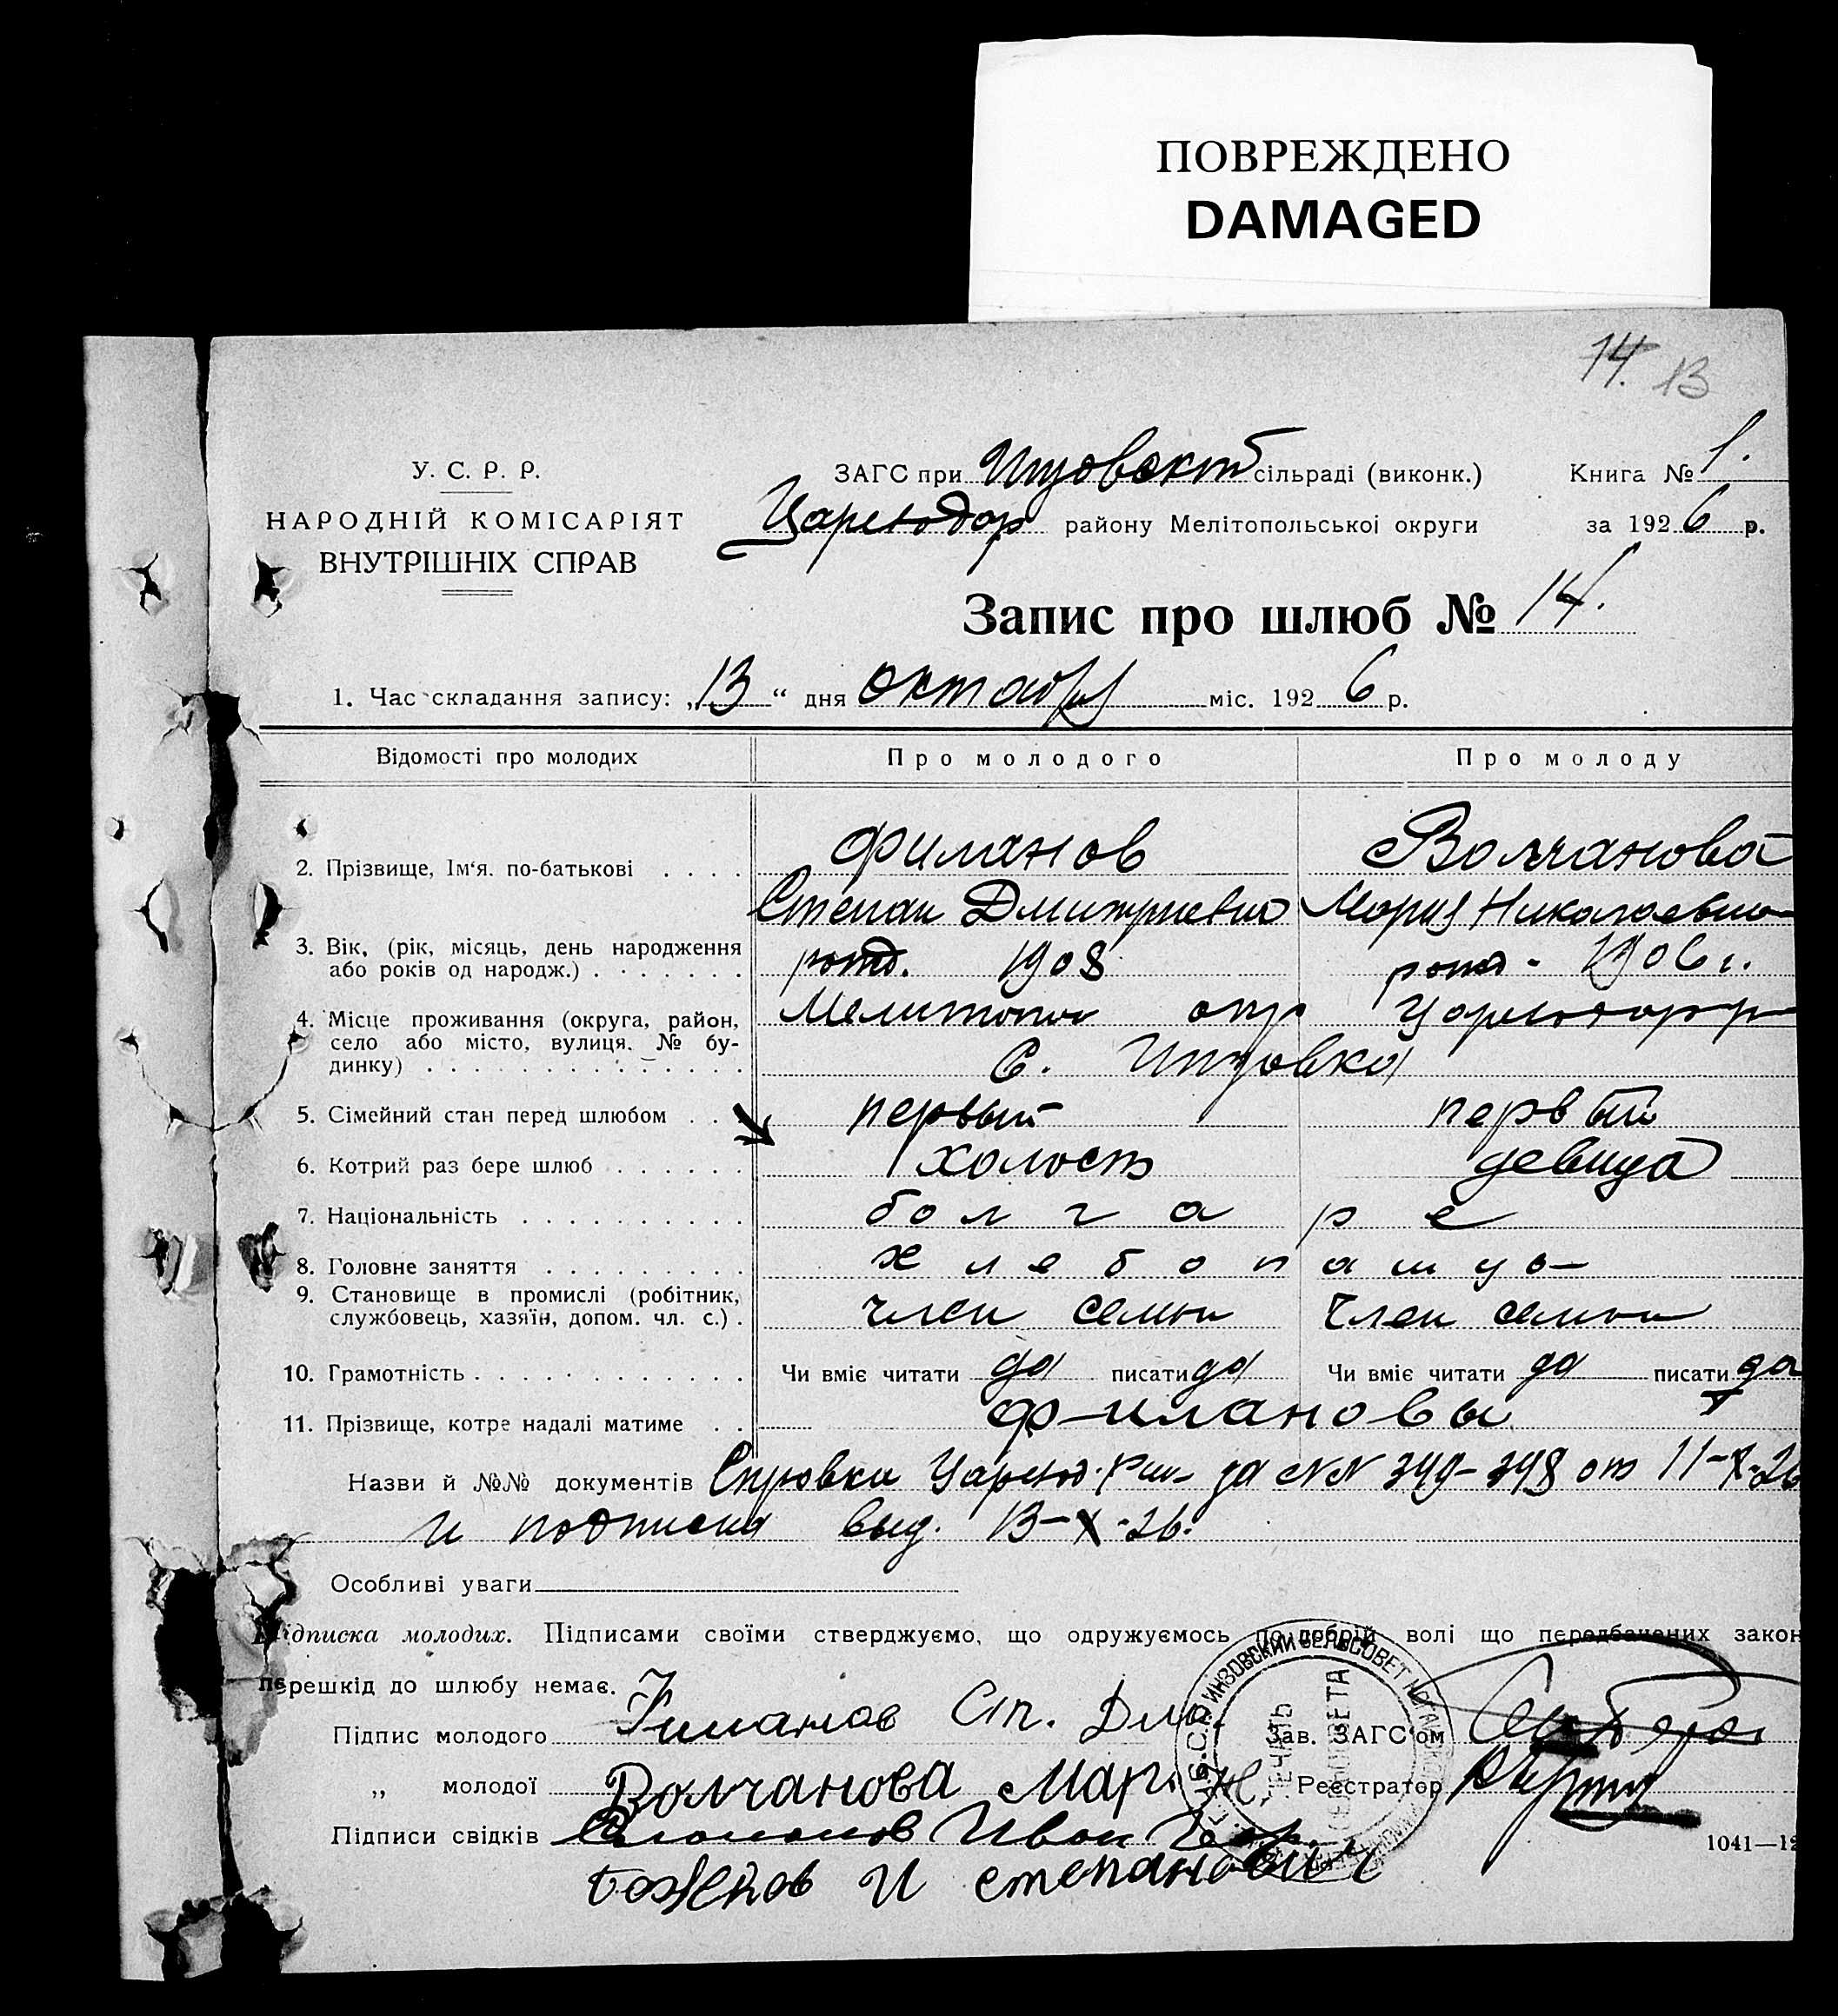 ПОВРЕЖДЕНО
DAMAGED
14. 13
У. С. Р. Р.
НАРОДНІЙ КОМІСАРІЯТ
ВНУТРІШНІХ СПРАВ
ЗАГС при Инзовскт сільраді (виконк.)
Книга № 1.
Цареводар району Мелітопольської округи
за 1926 р.
Запис про шлюб № 14.
1. Час складання запису: „13“ дня октября міс. 1926 р.
Відомості про молодих
Про молодого
Про молоду
2. Прізвище, Ім‘я. по-батькові
Филанов
Волчанова
Степан Дмитриевич
Мария Николаевна
3. Вік, (рік, місяць, день народження
або років од народж.)
рожд. 1908
рожд. 1906 г.
4. Місце проживання (округа, район,
село або місто, вулиця. № бу-
динку)
Мелитопол окр
С. Инзовка
5. Сімейний стан перед шлюбом
первый
первый
6. Котрий раз бере шлюб
холост
девица
7. Національність
болгаре
8. Головне заняття
хлебопашцы
9. Становище в промислі (робітник,
службовець, хазяїн, допом. чл. с.)
член семьи
член семьи
10. Грамотність
Чи вміє читати да писати да
Чи вміє читати да писати да
11. Прізвище, котре надалі матиме
Филановы
Назви й №№ документів Справки за №№ 349-348 от 11-X-26
и подписка выд. 13-X-26.
Особливі уваги
Підписка молодих. Підписами своїми стверджуємо, що одружуємось по добрій волі що передбачених закон
перешкід до шлюбу немає.
Підпис молодого Филанов Ст. Дм.
Зав. ЗАГС‘ом
„ молодої Волчанова Мари Н.
Реєстратор
Підписи свідків Иван
Божков И степанович
1041—12
ИНЗОВСКИЙ СЕЛЬСОВЕТ НОГАЙСКОГО
ПЕЧАТЬ
СЕЛЬСОВЕТА